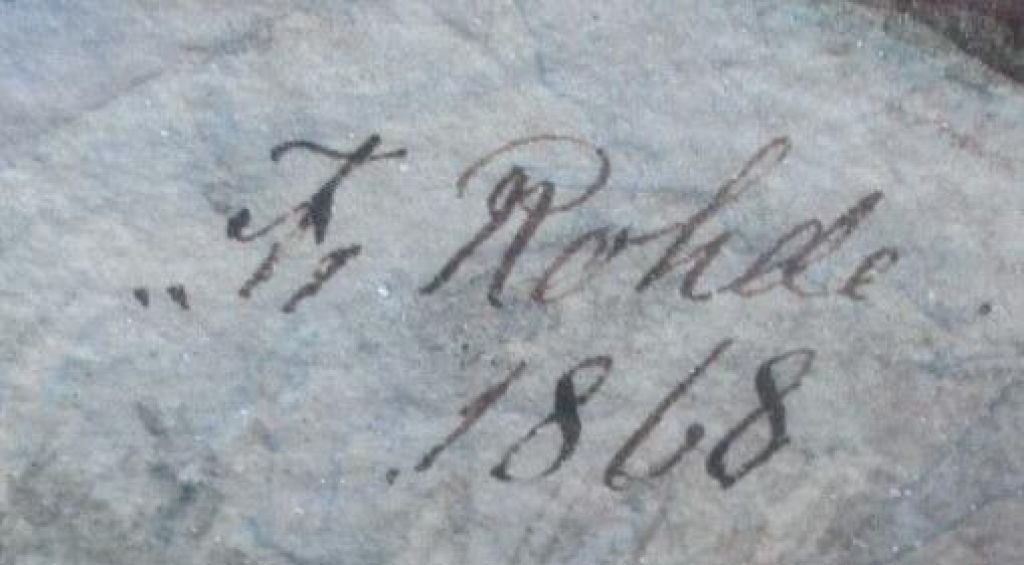 „ Fr Rohde.
1868